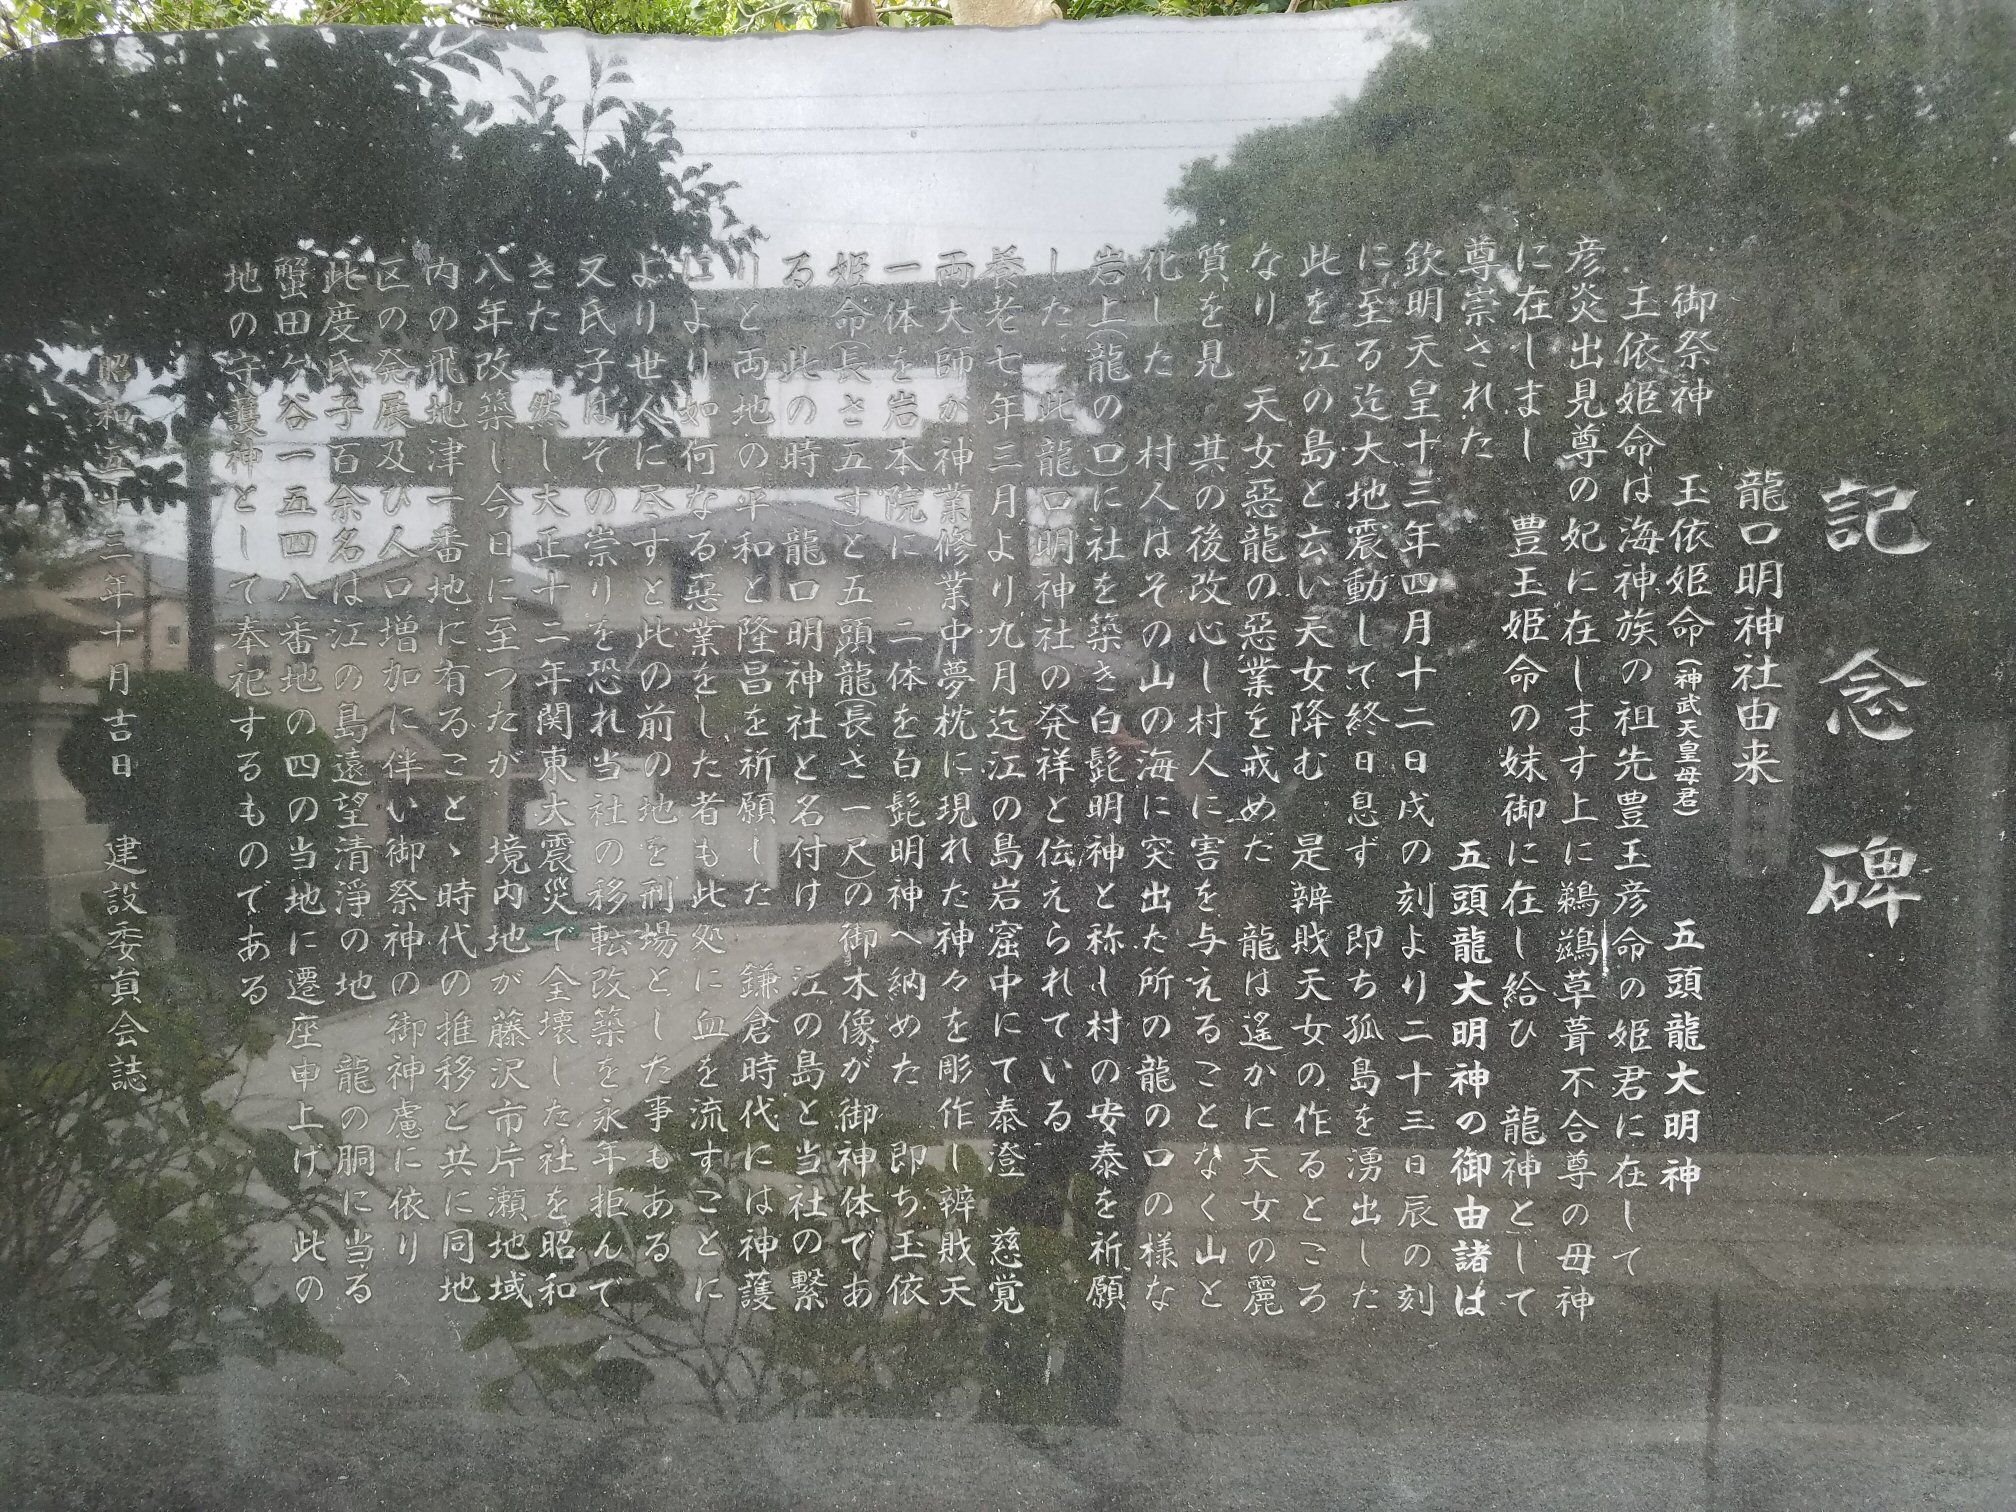 記念碑
龍口明神社由来
御祭神　玉依姫命（神武天皇母君）　五頭龍大明神
玉依姫命は海神族の祖先豊玉彦命の姫君に在して
彦炎出見尊の妃に在します上に鵜鷀草葺不合尊の母神
に在しまし　豊玉姫命の妹御に在し給ひ　龍神として
尊崇された　五頭龍大明神の御由諸は
欽明天皇十三年四月十二日戌の刻より二十三日辰の刻
に至る迄大地震動して終日息ず　即ち孤島を湧出した
此を江の島と云い天女降む　是辨戝天女の作るところ
なり　天女惡龍の惡業を戒めた　龍は遙かに天女の麗
質を見　其の後改心し村人に害を与えることなく山と
化した　村人はその山の海に突出た所の龍の口の様な
岩上（龍の口）に社を築き白髭明神と称し村の安泰を祈願
した　此龍口明神社の発祥と伝えられている
養老七年三月より九月迄江の島岩窟中にて泰澄　慈覚
両大師が神業修業中夢枕に現れた神々を彫作し辨戝天
一体を岩本院に　二体を白髭明神へ納めた　即ち玉依
姫命（長さ五寸）と五頭龍（長さ一尺）の御木像が御神体であ
る　此の時　龍口明神社と名付け　江の島と当社の繋
りと両地の平和と隆昌を祈願した　鎌倉時代には神護
により如何なる惡業をした者も此処に血を流すことに
より世人に尽すと此の前の地を刑場とした事もある
又氏子はその崇りを恐れ当社の移転改築を永年拒んで
きた　然し大正十二年関東大震災で全壊した社を昭和
八年改築し今日に至つたが　境内地が藤沢市片瀬地域
内の飛地津一番地に有ること、時代の推移と共に同地
区の発展及び人口増加に伴い御祭神の御神慮に依り
此度氏子百余名は江の島遠望清淨の地　龍の胴に当る
蟹田ケ谷一五四八番地の四の当地に遷座申上げ　此の
地の守護神として奉祀するものである
昭和五十三年十月吉日　建設委員会誌